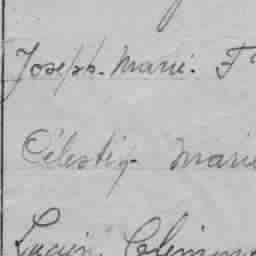 Joseph-Marie. F
Célestin- Marie
Lucien